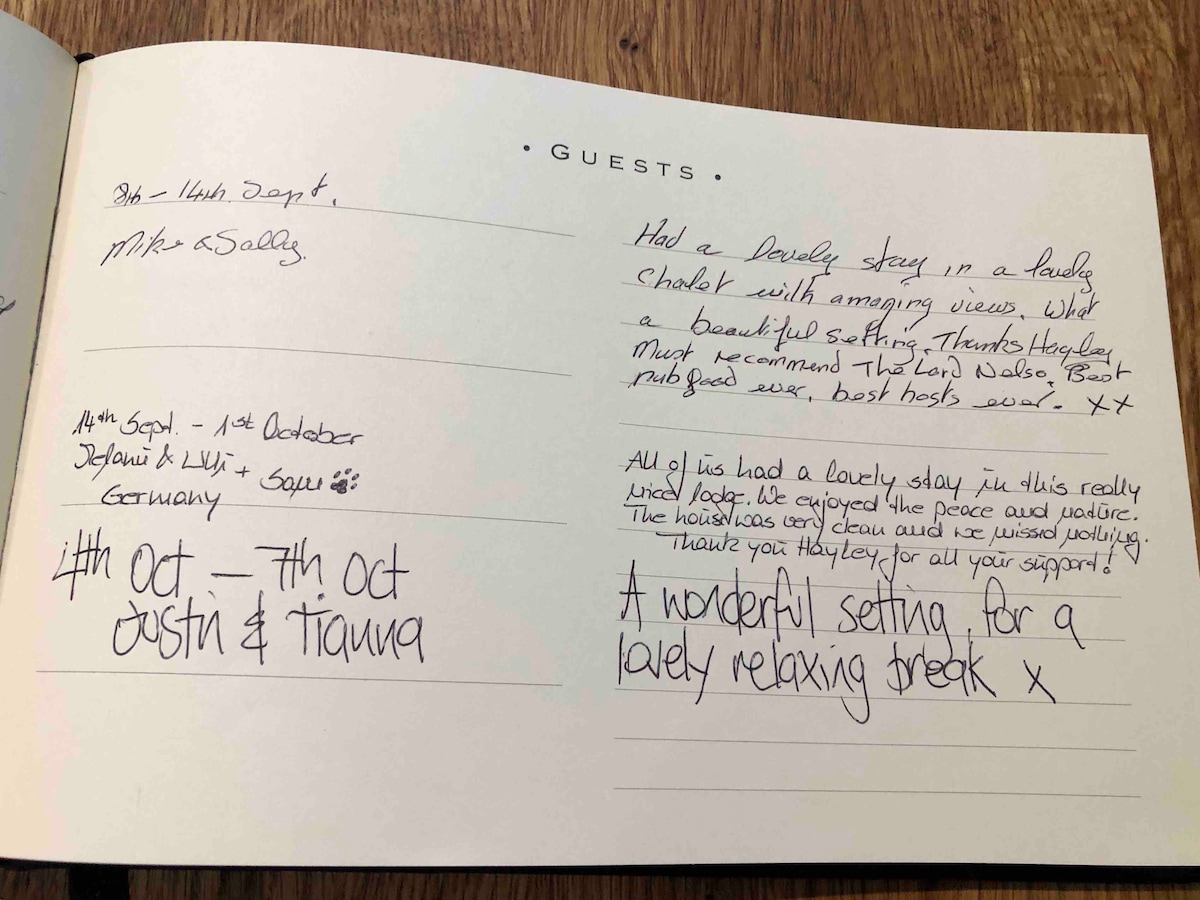 • GUESTS •
8th – 14th Sept.
Mike & Sally.
Had a lovely stay in a lovely
chalet with amazing views. What
a beautiful setting. Thanks Hayley
Must recommend The Lord Nelso. Best
pub food ever, best hosts ever. XX
14th Sept. – 1st October
Stefanie & Willi +
Germany
All of us had a lovely stay in this really
nice lodge. We enjoyed the peace and nature.
The house was very clean and we missed nothing.
Thank you Hayley for all your support!
4th Oct – 7th Oct
Justin & Tianna
A wonderful setting for a
lovely relaxing break x